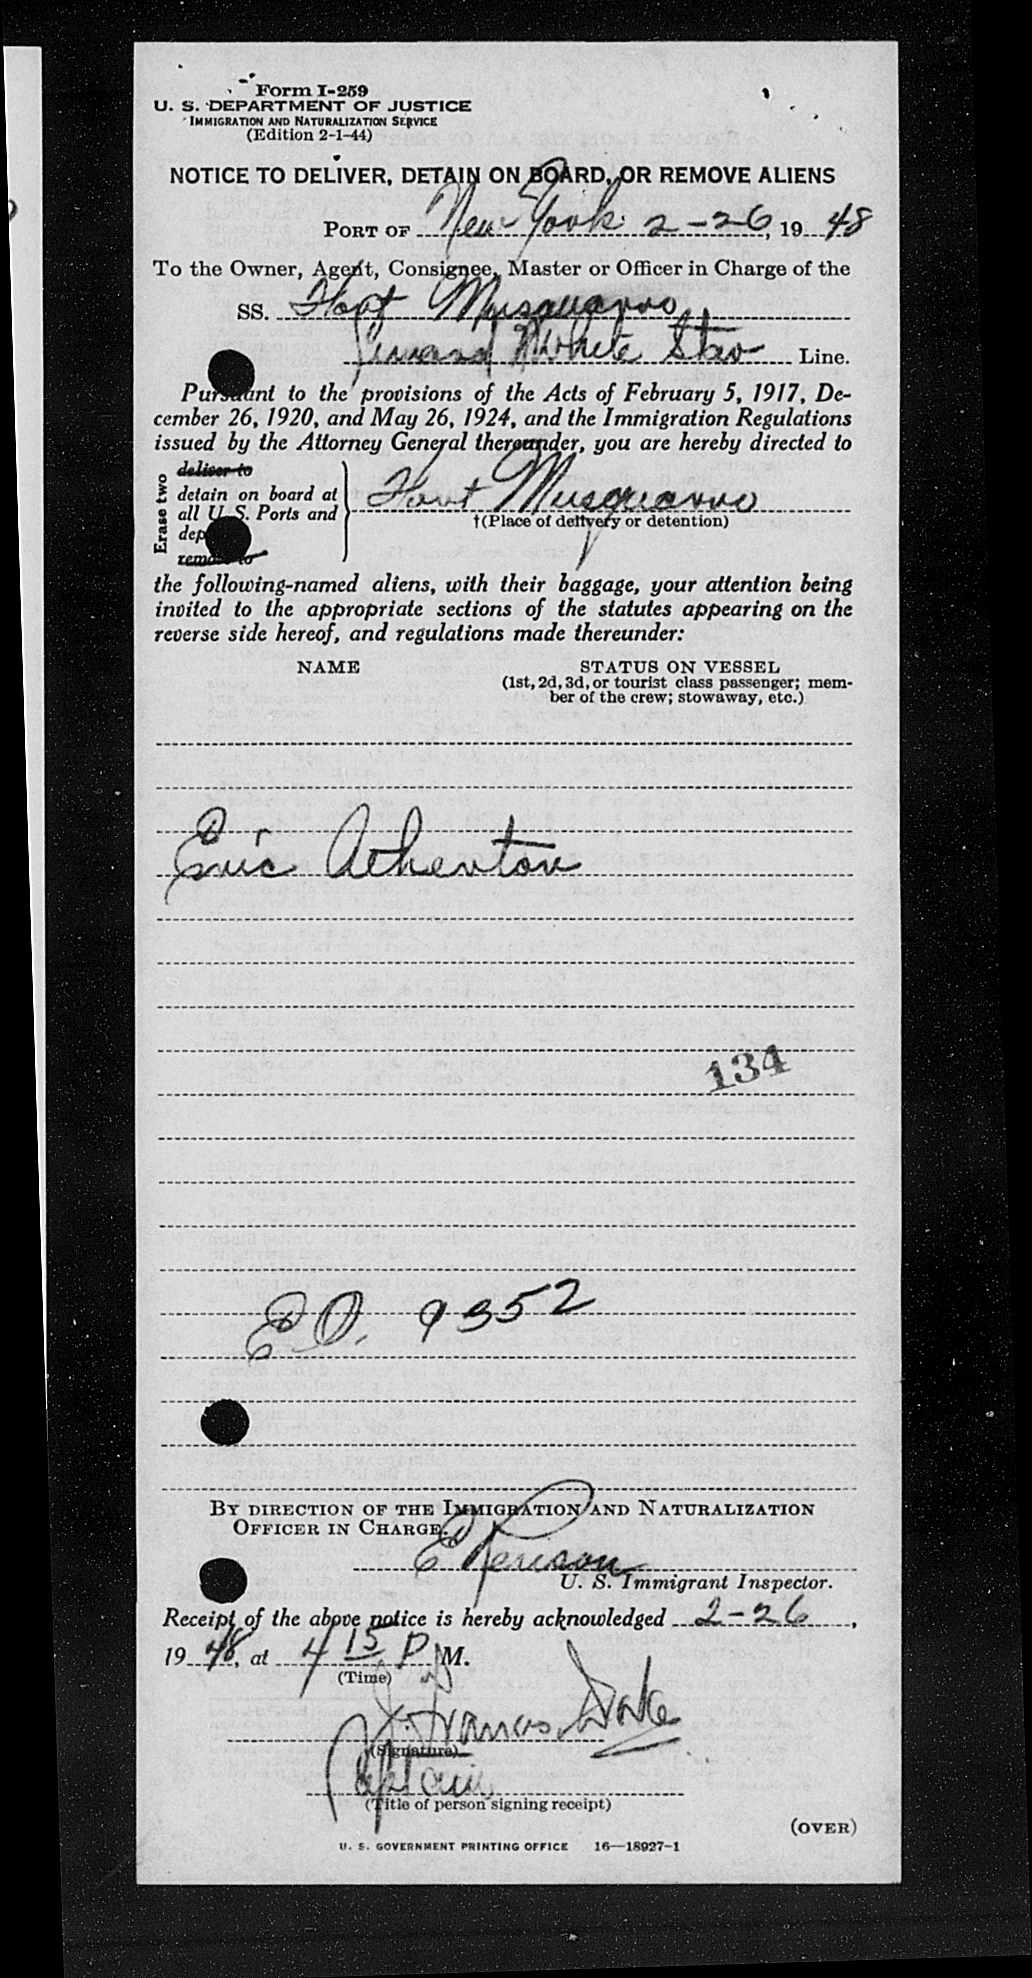 Form I-259
U. S. DEPARTMENT OF JUSTICE
IMMIGRATION AND NATURALIZATION SERVICE
(Edition 2-1-44)
NOTICE TO DELIVER, DETAIN ON BOARD, OR REMOVE ALIENS
PORT OF New York 2-26, 19 48
To the Owner, Agent, Consignee, Master or Officer in Charge of the
SS. Fort Musquarro
Cunard White Star Line.
Pursuant to the provisions of the Acts of February 5, 1917, De-
cember 26, 1920, and May 26, 1924, and the Immigration Regulations
issued by the Attorney General thereunder, you are hereby directed to
Erase two
deliver to
detain on board at
all U. S. Ports and
dep
remove to
Fort Musquarro
†(Place of delivery or detention)
the following-named aliens, with their baggage, your attention being
invited to the appropriate sections of the statutes appearing on the
reverse side hereof, and regulations made thereunder:
NAME STATUS ON VESSEL
(1st, 2d, 3d, or tourist class passenger; mem-
ber of the crew; stowaway, etc.)
Eric Atherton
134
E.O. 9352
BY DIRECTION OF THE IMMIGRATION AND NATURALIZATION
OFFICER IN CHARGE.
E
U. S. Immigrant Inspector.
Receipt of the above notice is hereby acknowledged 2-26,
19 48, at 4 15 P M.
(Time)
Francis
(Signature)
Captain
(Title of person signing receipt)
(OVER)
U. S. GOVERNMENT PRINTING OFFICE 16—18927-1